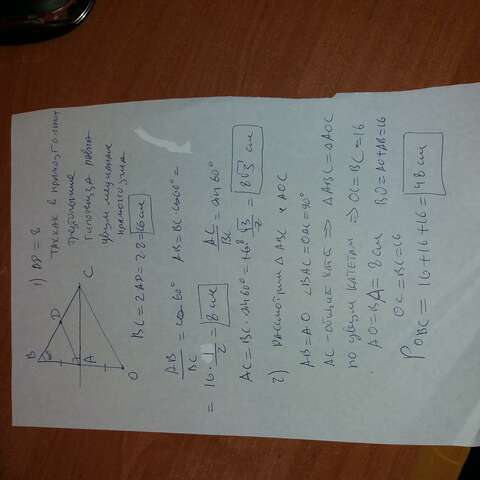 1) AD = 8
так как в прямоугольном
треугольнике
гипотенуза равна
двум медианам
прямого угла
B
D
C
A
O
60°
BC = 2AD = 2·8 = 16 см
AB/BC = cos 60° AB = BC·cos 60° =
= 16 · 1/2 = 8 см AC/BC = sin 60°
AC = BC · sin 60° = 16 · √3/2 = 8√3 см
2) рассмотрим △ ABC и AOC
AB = AO ∠BAC = OAC = 90°
AC - общий катет ⇒ △ABC = △AOC
по двум катетам ⇒ OC = BC = 16
AO = BA = 8 см BO = AO + AB = 16
OC = BC = 16
P OBC = 16 + 16 + 16 = 48 см